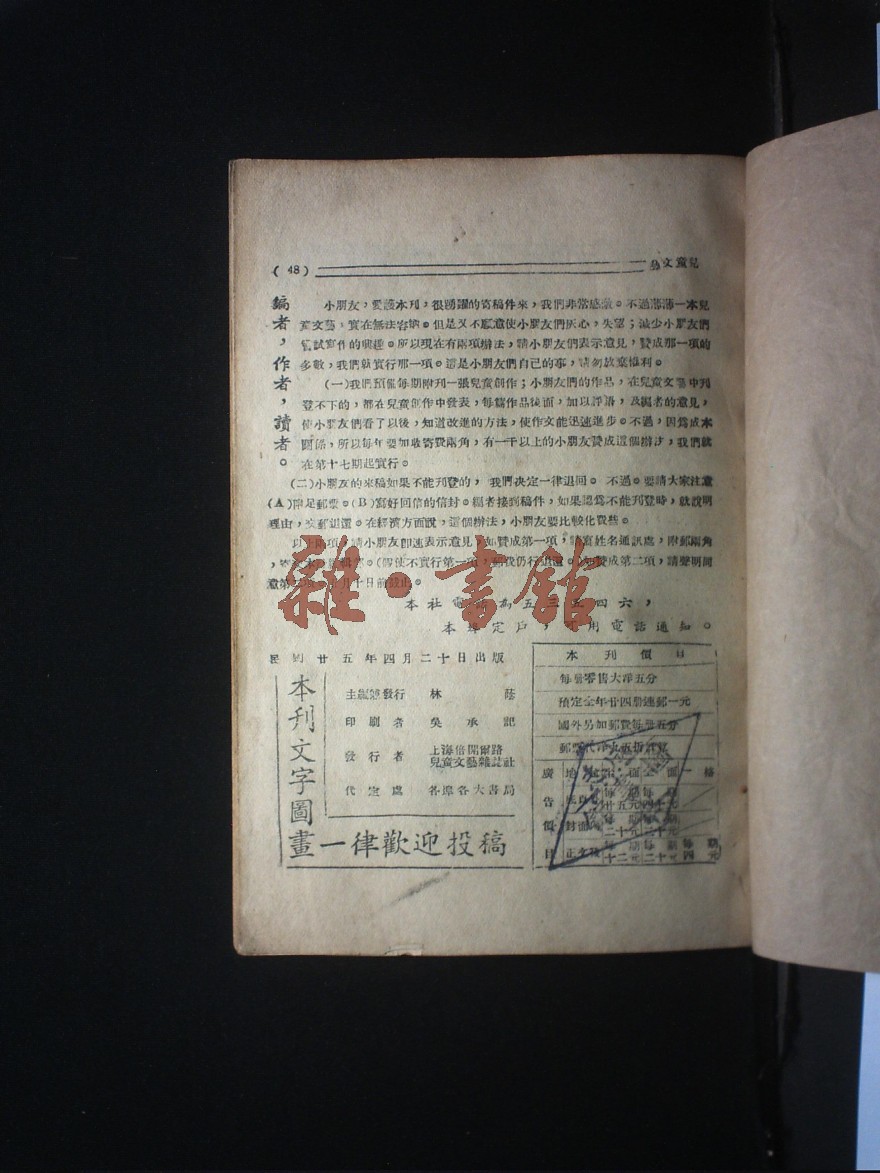 (48)
兒童文藝
編者，作者，讀者。
小朋友，愛護本刊，很踴躍的寄稿件來，我們非常感激。不過薄薄一本兒
童文藝，實在無法容納。但是又不願意使小朋友們灰心，失望；減少小朋友們
嘗試寫作的興趣。所以現在有兩項辦法，請小朋友們表示意見，贊成那一項的
多數，我們就實行那一項。這是小朋友們自己的事，請勿放棄權利。
(一)我們預備每期附刊一張兒童創作；小朋友們的作品，在兒童文藝中刊
登不下的，都在兒童創作中發表，每篇作品後面，加以評語，及編者的意見，
使小朋友們看了以後，知道改進的方法，使作文能迅速進步。不過，因爲成本
關係，所以每年要加收寄費兩角，有一千以上的小朋友贊成這個辦法，我們就
在第十七期起實行。
(二)小朋友的來稿如果不能刊登的，我們决定一律退回。不過。要請大家注意
(A)附足郵票。(B)寫好回信的信封。編者接到稿件，如果認爲不能刊登時，就說明
理由，交郵退還。在經濟方面說，這個辦法，小朋友要比較化費些。
以上兩項，請小朋友卽速表示意見，如贊成第一項，請寫姓名通訊處，附郵兩角
，寄交本社編輯部。(假使不實行第一項，郵票我仍行退還。)如贊成第二項，請聲明同
意第二項。月十日前截止。
本社電話爲五三五四六，
本埠定戶，可用電話通知。
民國廿五年四月二十日出版
本刊文字圖畫一律歡迎投稿
主編兼發行 林蔭
印刷者 吳承記
發行者 上海倍開爾路
兒童文藝雜誌社
代定處 各埠各大書局
本刊價目
每册零售大洋五分
預定全年廿四册連郵一元
國外另加郵費每册五分
郵票代洋九五折計算
廣告價目
地位
封面
正文後
雜·書館